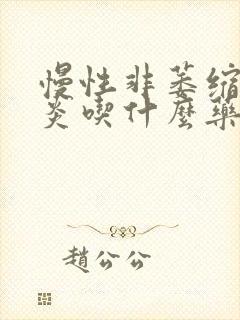 慢性非萎縮
炎喫什麼藥
趙公公